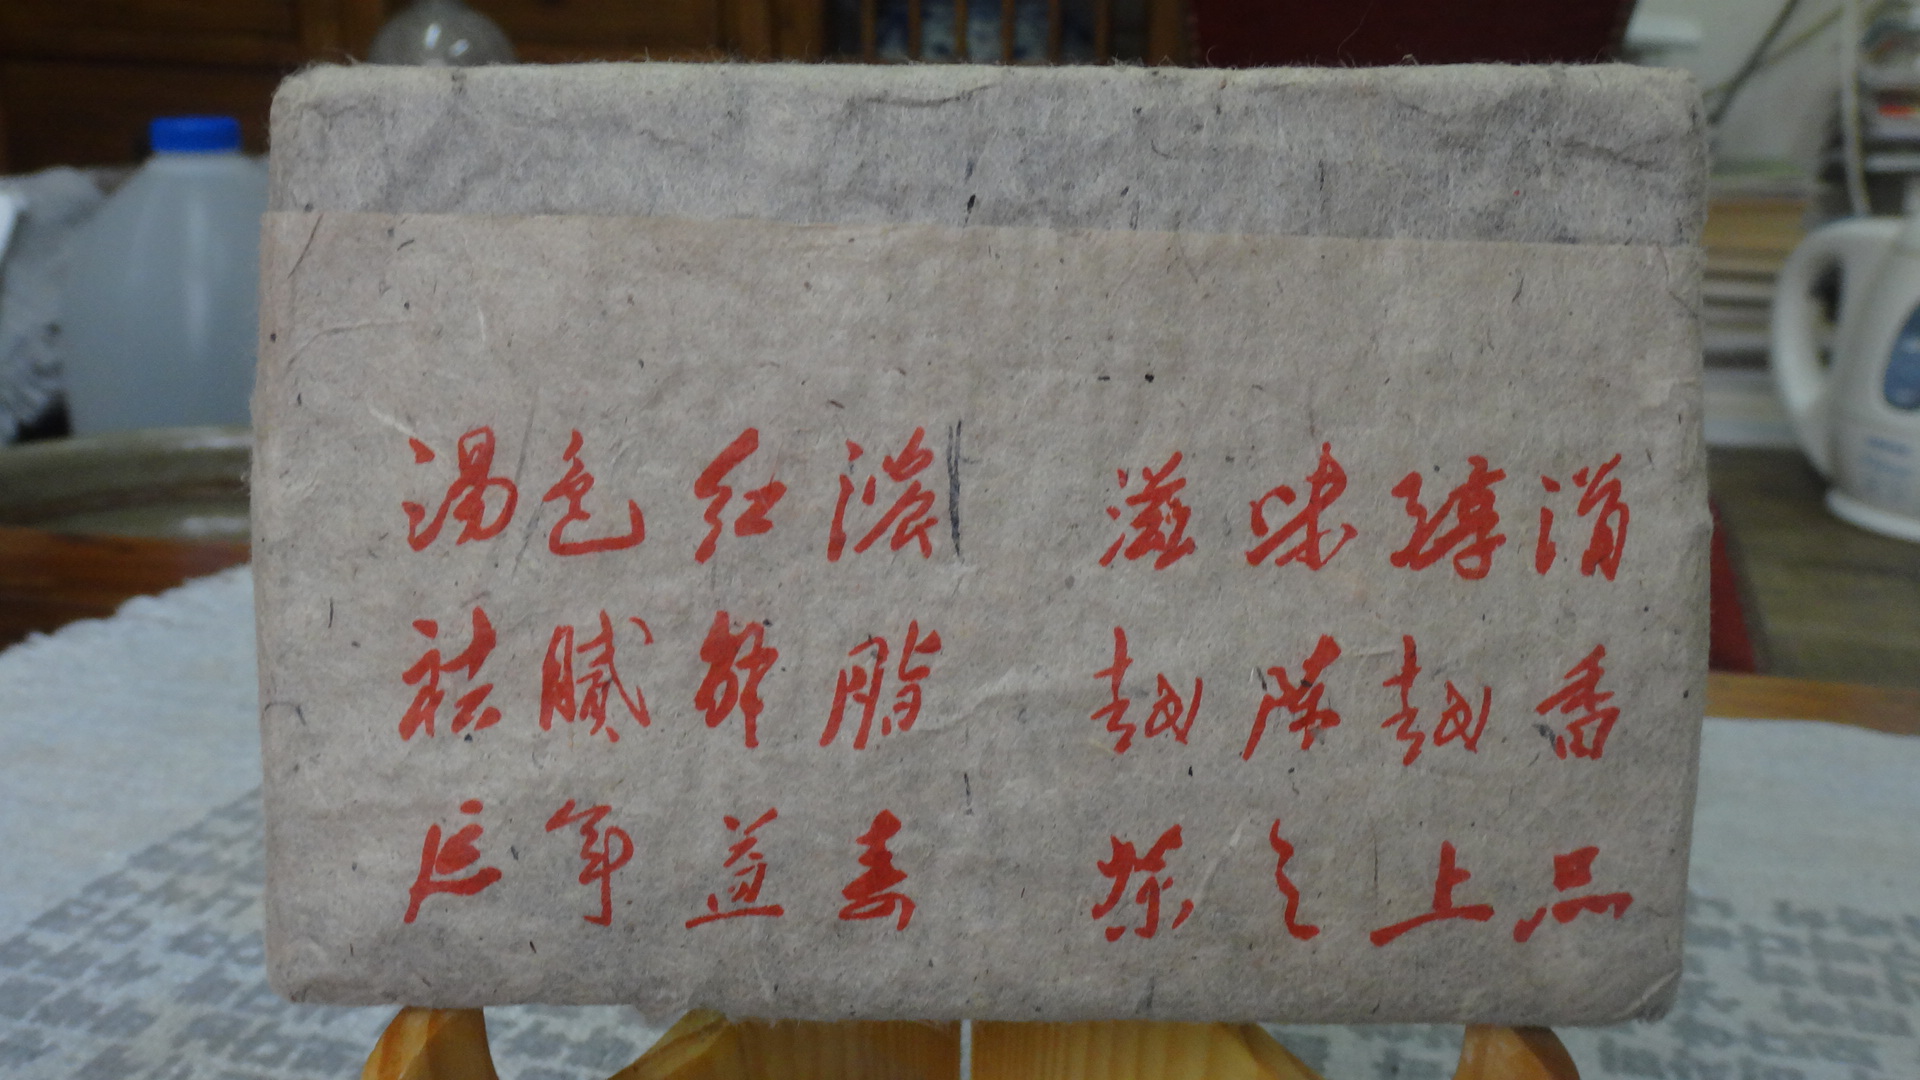 湯色红濃 滋味醇滑
祛腻解脂 越陈越香
延年益寿 茶之上品